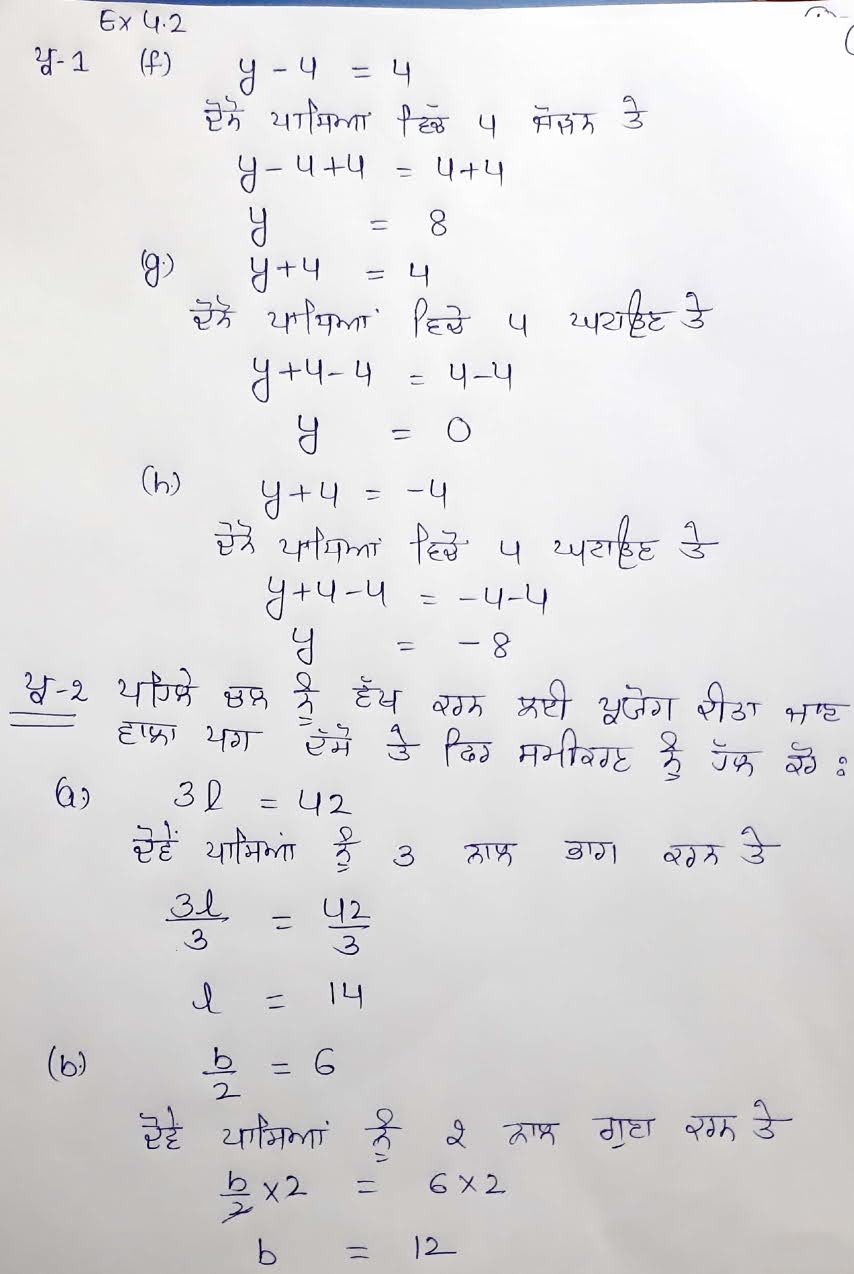 Ex 4.2
ਪ੍ਰ-1 (f) y - 4 = 4
ਦੋਨੋ ਪਾਸਿਆਂ ਵਿੱਚ 4 ਜੋੜਨ ਤੇ
y - 4 + 4 = 4+4
y = 8
(g.) y + 4 = 4
ਦੋਨੋ ਪਾਸਿਆਂ ਵਿਚੋ 4 ਘਟਾਉਣ ਤੇ
y + 4 - 4 = 4-4
y = 0
(h.) y + 4 = -4
ਦੋਨੋ ਪਾਸਿਆਂ ਵਿਚੋ 4 ਘਟਾਉਣ ਤੇ
y + 4 - 4 = -4-4
y = -8
ਪ੍ਰ-2 ਪਹਿਲੇ ਚਲ ਨੂੰ ਵੱਖ ਕਰਨ ਲਈ ਪ੍ਰਯੋਗ ਕੀਤਾ ਜਾਣ
ਵਾਲਾ ਪਗ ਦੱਸੋ ਤੇ ਫਿਰ ਸਮੀਕਰਣ ਨੂੰ ਹੱਲ ਕਰੋ :
(a.) 3l = 42
ਦੋਵੇਂ ਪਾਸਿਆਂ ਨੂੰ 3 ਨਾਲ ਭਾਗ ਕਰਨ ਤੇ
3l/3 = 42/3
l = 14
(b.) b/2 = 6
ਦੋਵੇਂ ਪਾਸਿਆਂ ਨੂੰ 2 ਨਾਲ ਗੁਣਾ ਕਰਨ ਤੇ
b/2 × 2 = 6 × 2
b = 12